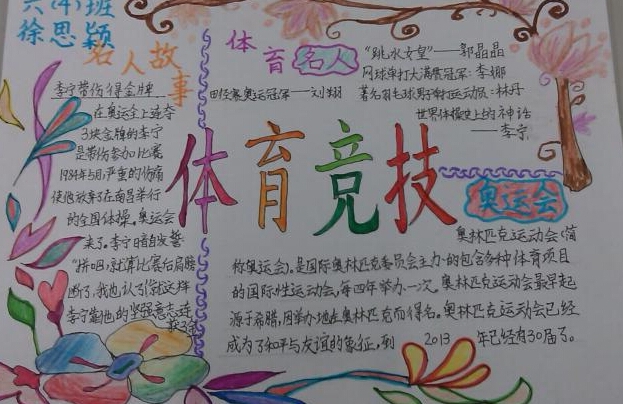 六(4)班
徐思颖
名人故事
李宁带伤得金牌
在奥运会上连夺
3块金牌的李宁
是带伤参加比赛
1984年5月,严重的伤痛
使他放弃了在南昌举行
的全国体操。奥运会
来了。李宁暗自发誓
"拼吧,就算比赛后肩膀
断了,我也认了!"就这样
李宁靠他的坚强意志连
获3金
体育名人
"跳水女皇"——郭晶晶
网球单打大满贯冠军:李娜
田径赛奥运冠军——刘翔
著名羽毛球男子单打运动员:林丹
世界体操史上的神话
——李宁
体育竞技
奥运会
奥林匹克运动会(简
称奥运会)。是国际奥林匹克委员会主力的包含多种体育项目
的国际性运动会,每四年举办一次。奥林匹克运动会最早起
源于希腊,因举办地在奥林匹克而得名。奥林匹克运动会已经
成为了和平与友谊的象征,到 2013 年已经有30届了。